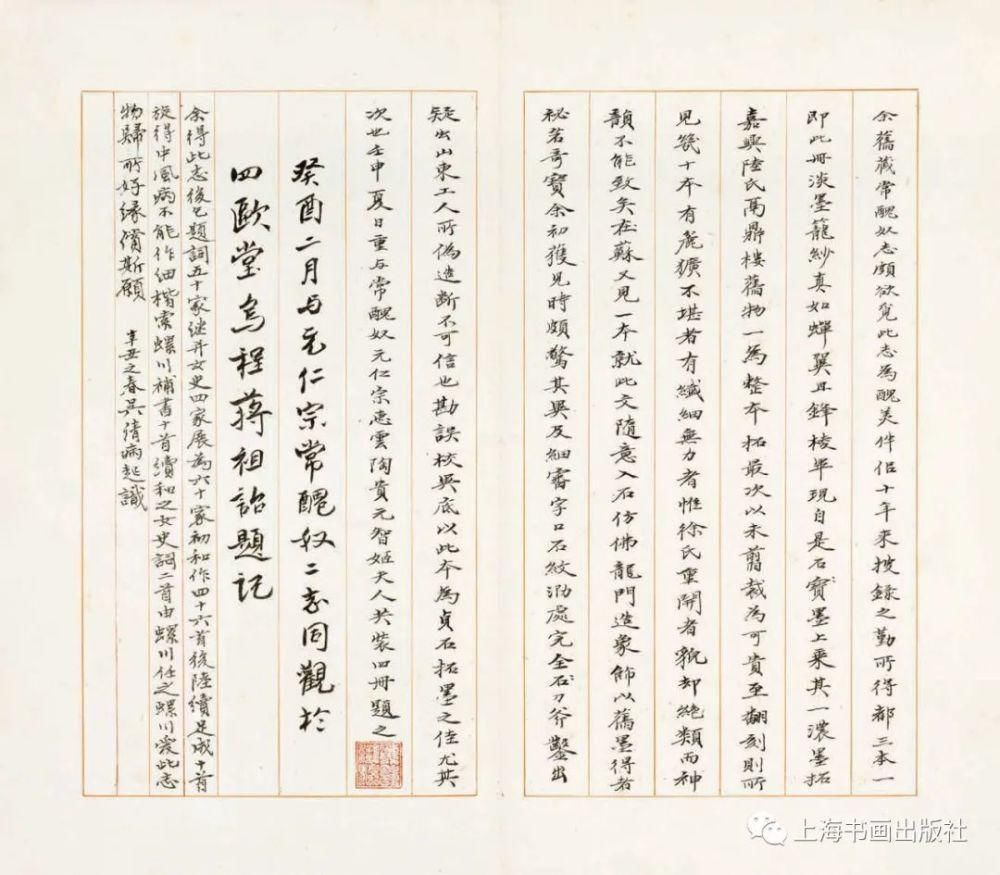 余舊藏常醜奴志頗欲覓此志為醜美伴侶十年來搜錄之勤所得都三本一
即此冊淡墨籠紗真如蟬翼且鋒棱畢現自是石寶墨上乘其一濃墨拓
嘉興陸氏鬲鼎樓舊物一為整本拓最次以未翦裁為可貴至翻刻則所
見幾十本有麄獷不堪者有纖細無力者惟徐氏重開者貌却絕類而神
韻不能致矣在蘇又見一本就此文隨意入石仿佛龍門造象飾以舊墨得者
秘若奇寶余初獲見時頗驚其異及細審字口石紋泐處完全石刀斧鑿出
疑出山東工人所偽造斷不可信也勘誤校異底以此本為貞石拓墨之佳尤其
次也壬申夏日重与常醜奴元仁宗惠雲陶貴元智姬夫人共裝四冊題之
癸酉二月与元仁宗常醜奴二志同觀於
四歐堂烏程蔣祖詒題記
余得此志後乞題詞五十家继幷女史四家展為六十家初和作四十六首後陸續足成十首
旋得中風病不能作細楷索螺川補書十首續和之女史詞二首由螺川任之螺川爱此志
物歸所好緣償斯願 辛丑之春吳倩病起識
上海书画出版社